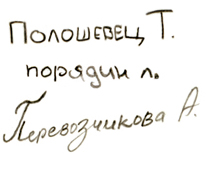 Полошевец Т.
порядин л.
Перевозчикова А.